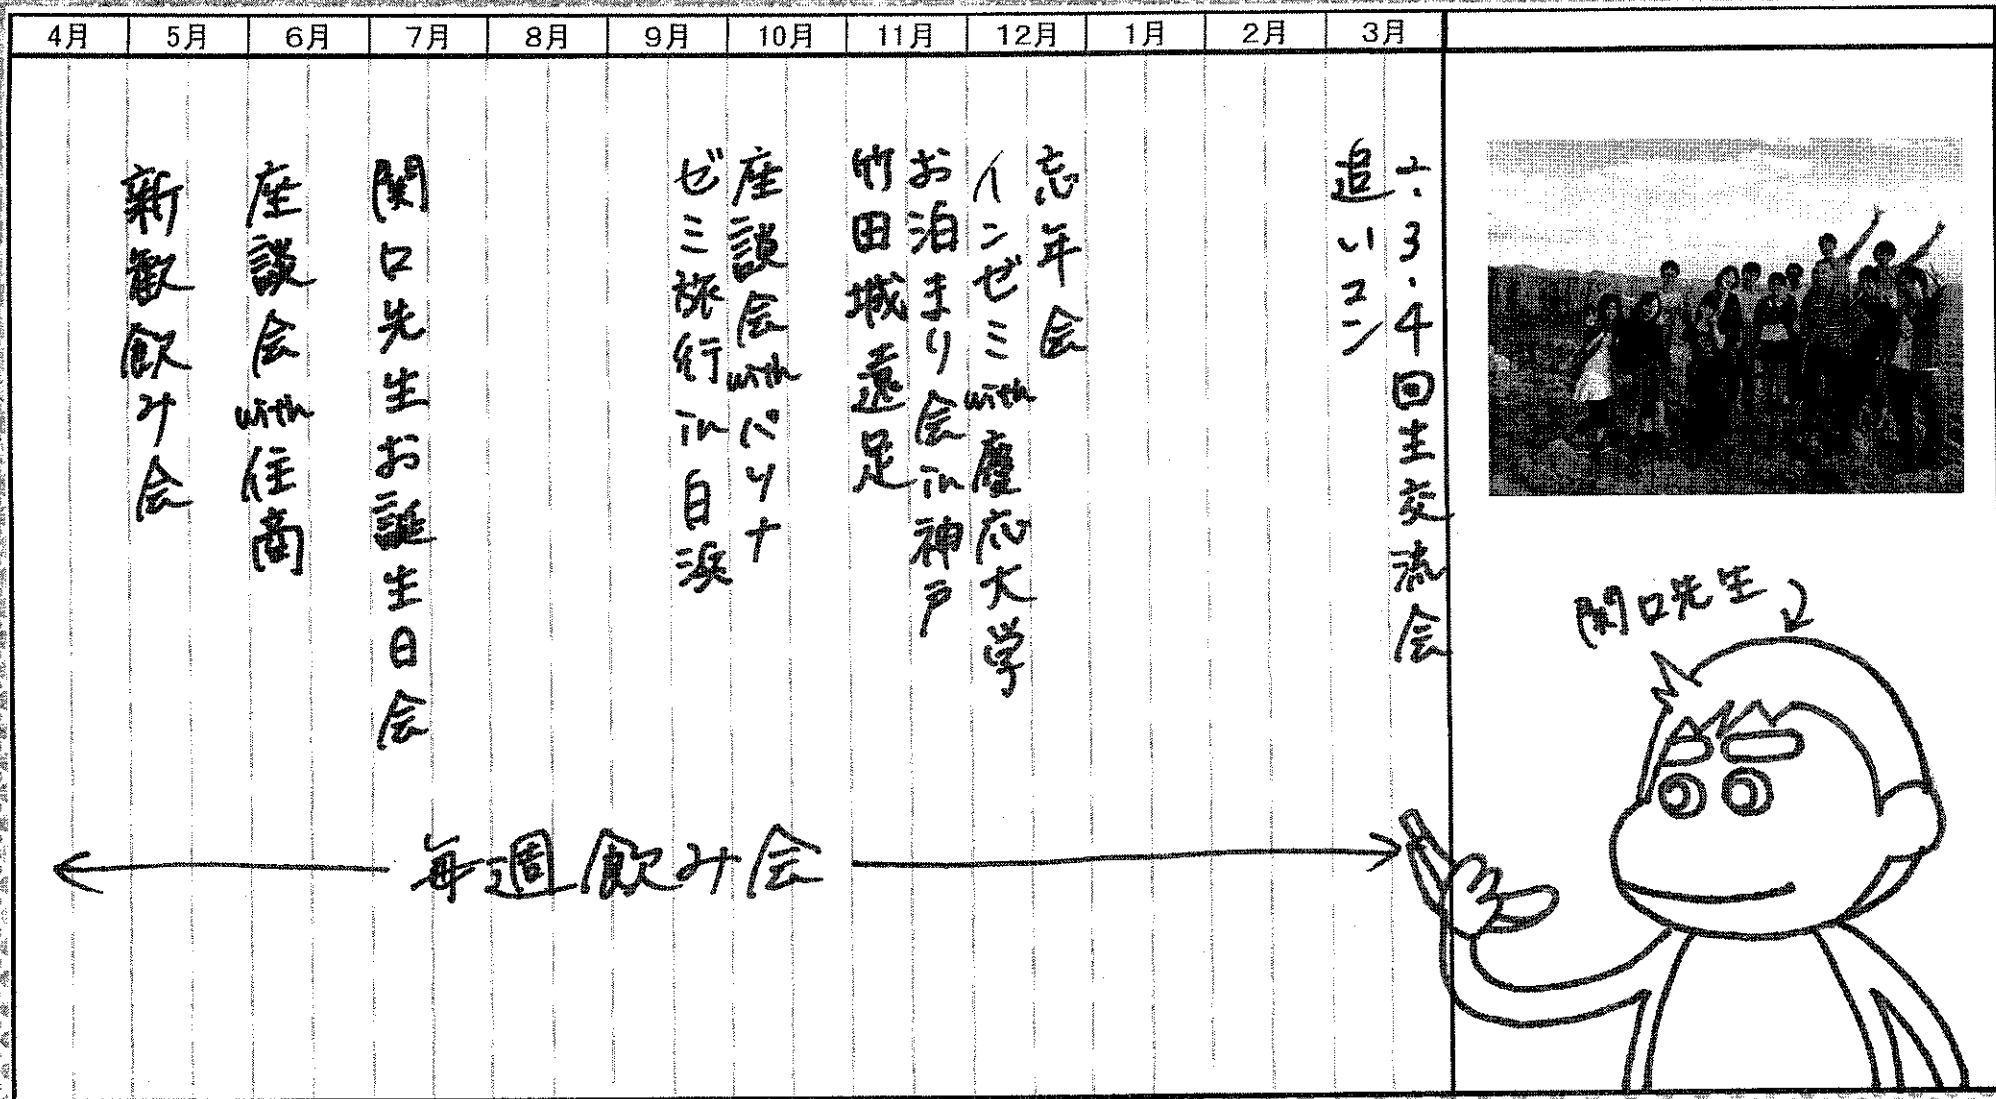 4月 5月 6月 7月 8月 9月 10月 11月 12月 1月 2月 3月
新歓飲み会
座談会with住商
関口先生お誕生日会
ゼミ旅行in白浜
座談会withパソナ
竹田城遠足
お泊まり会in神戸
インゼミwith慶応大学
忘年会
追いコン
2.3.4回生交流会
毎週飲み会
関口先生